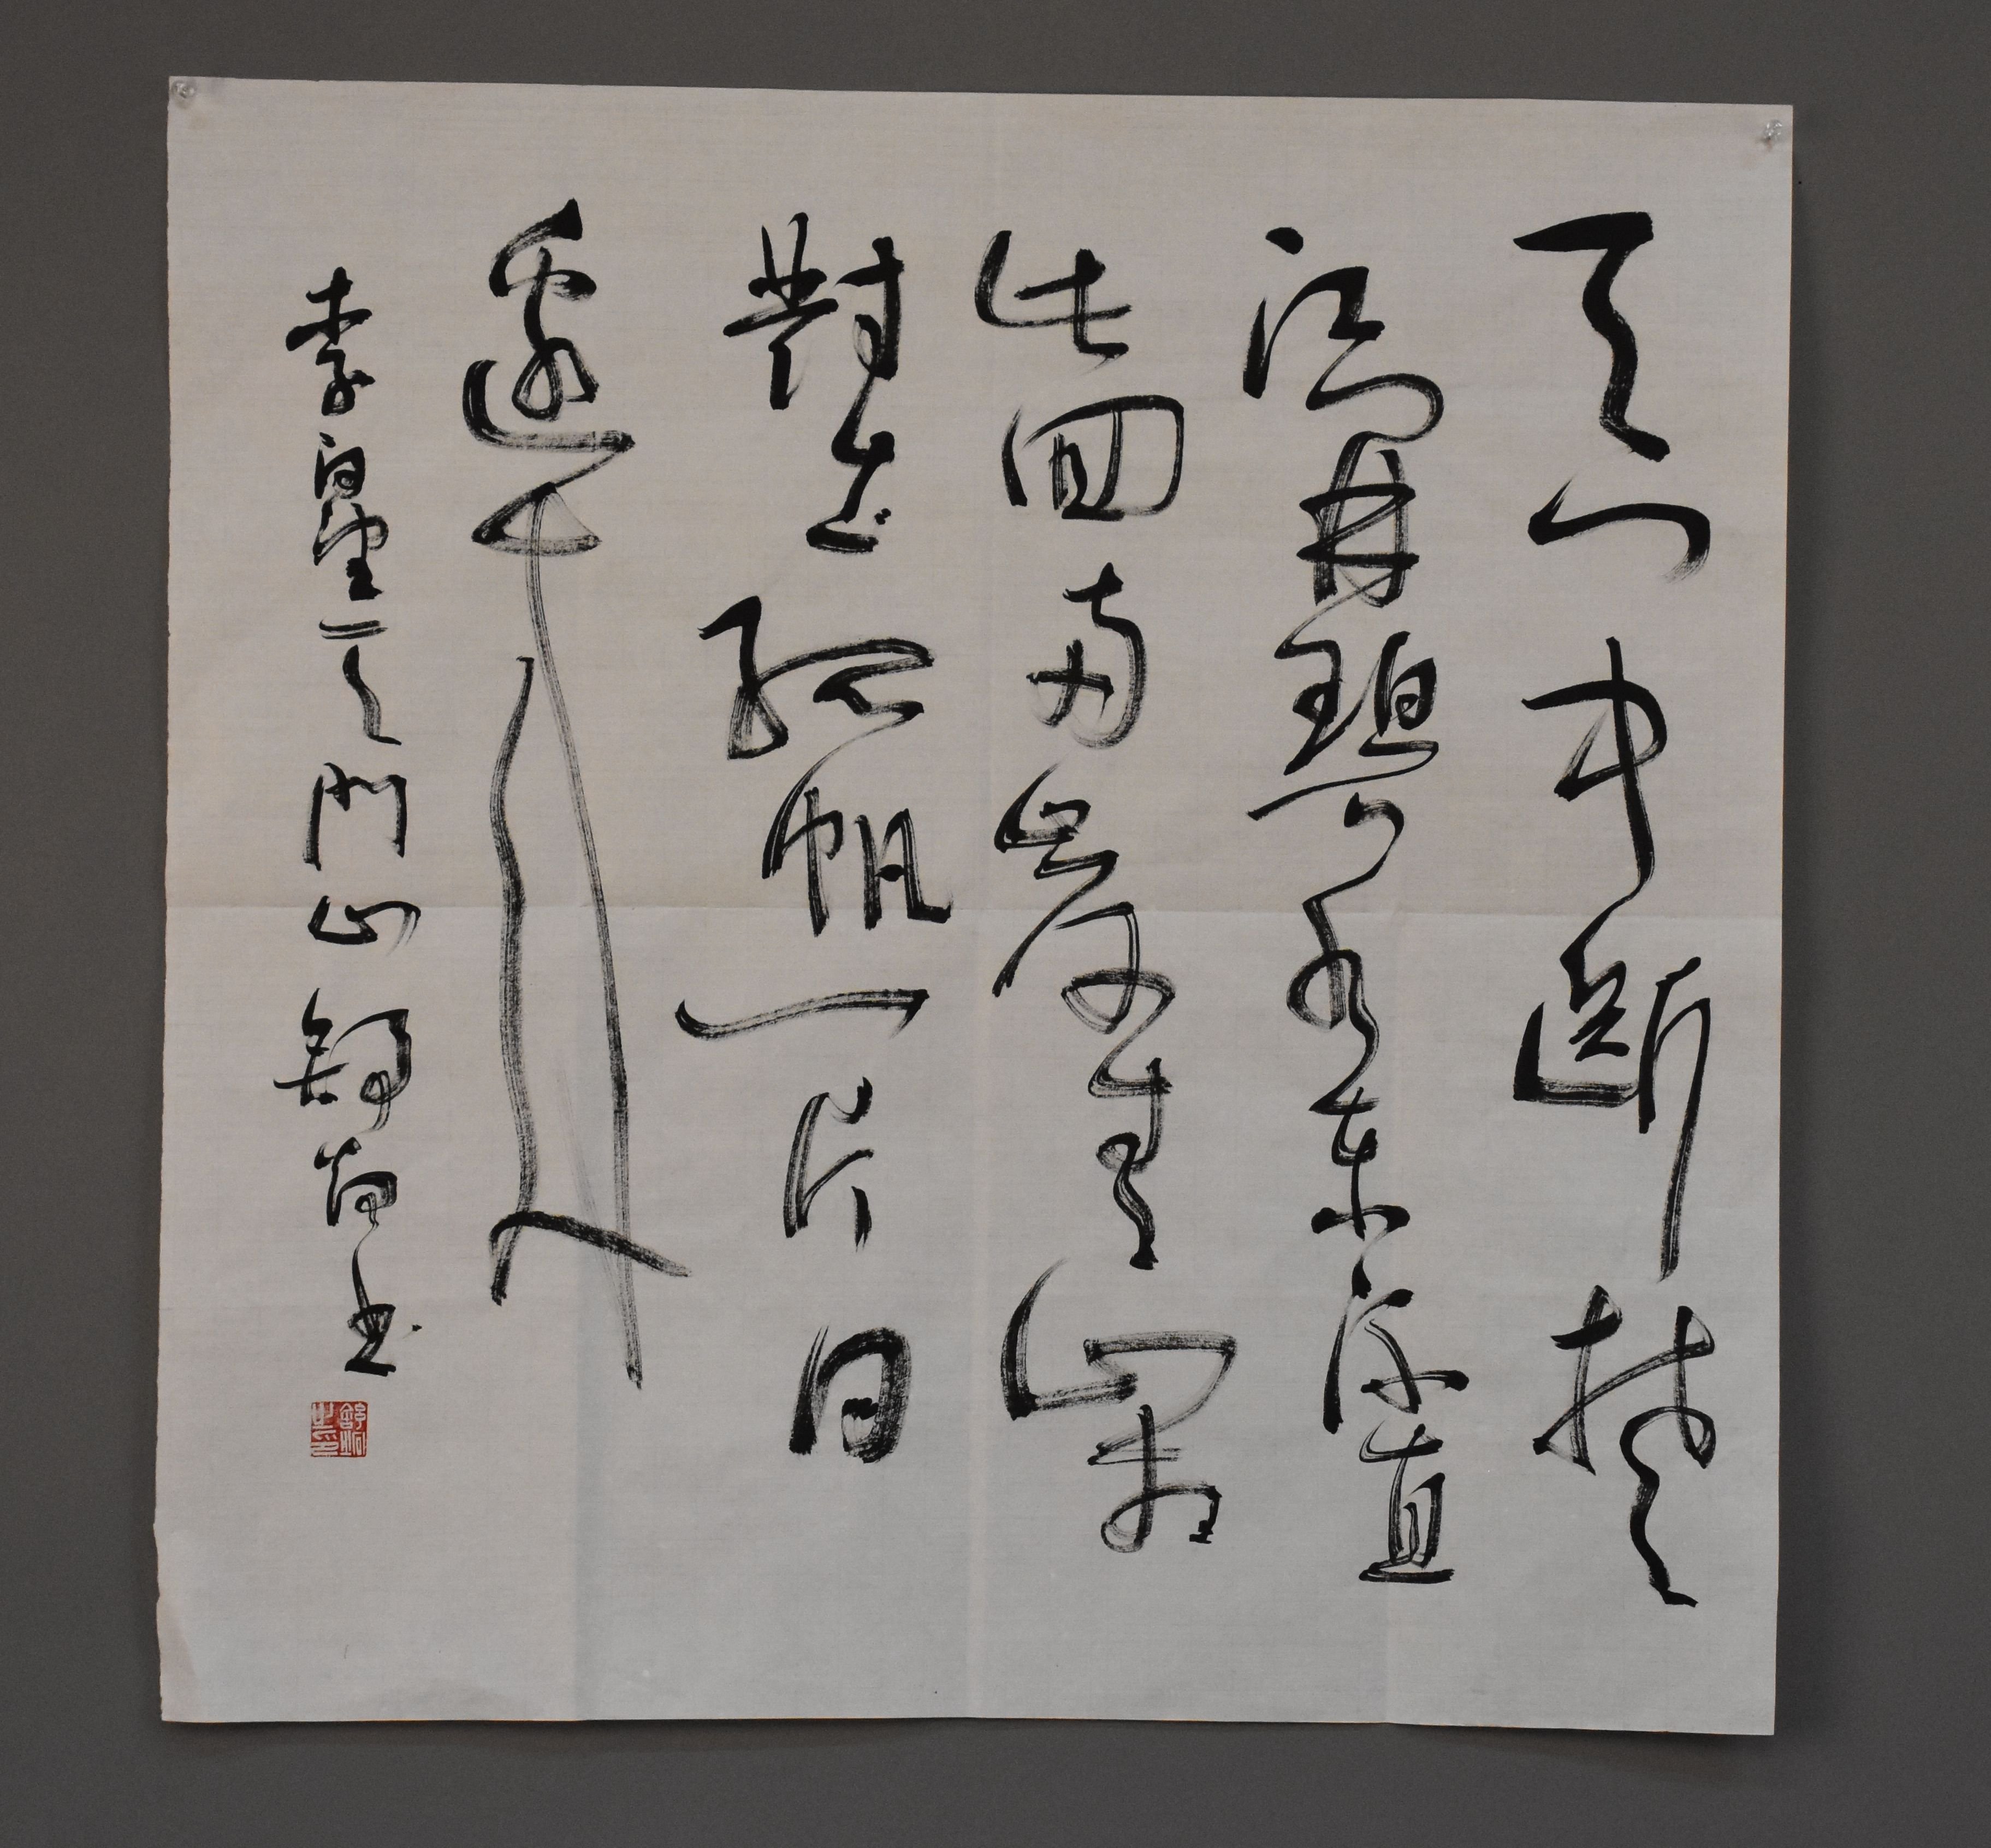 天門中斷楚
江開碧水東流直
此回兩岸青山相
對出孤帆一片日
邊來
李白望天門山 舒炯書
舒炯之印